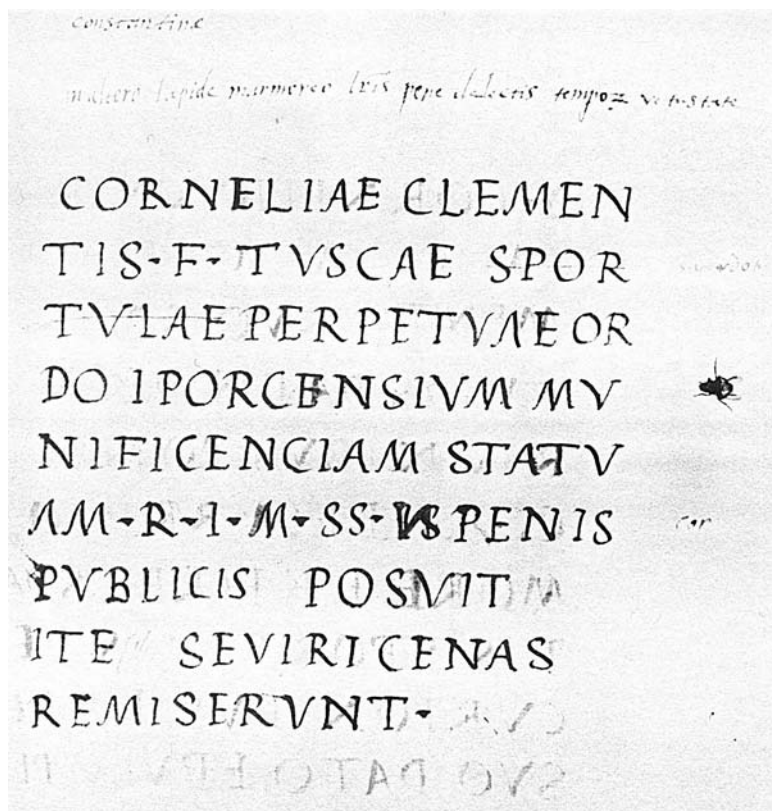 constantine
in altero lapide marmoreo lris pepe delectis tempoꝝ vetustate
CORNELIAE CLEMEN
TIS-F-TVSCAE SPOR
TVLAE PERPETVAE OR
DO IPORCENSIVM MV
NIFICENCIAM STATV
AM-R-I-M-SS- PENIS
PVBLICIS POSVIT
ITE SEVIRI CENAS
REMISERVNT-